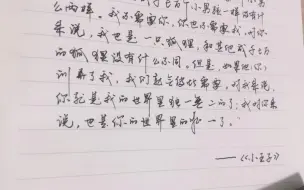 么两样。我不需要你，你也不需要我。对你
来说，我也是一只狐狸，和其他成千上万
的狐狸没有什么不同。但是，如果你
训养了我，我们就会彼此需要，对我来说，
你就是我的世界里独一无二的了；我对你来
说，也是你的世界里的唯一了。
——《小王子》